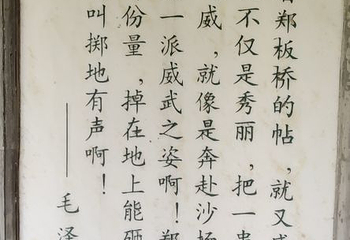 郑板桥的帖，就又感
不仅是秀丽，把一串
威，就像是奔赴沙场
一派威武之姿啊！郑
份量，掉在地上能砸
叫掷地有声啊！
——毛泽